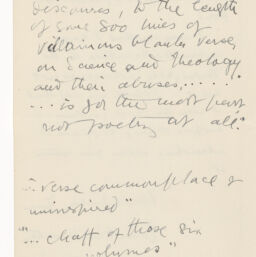 Discourses, to the length
of some 800 lines of
villainous blank verse,
on Science and Theology
and their abuses, . . . . .
. . . is for the most part
not poetry at all."
". verse commonplace &
uninspired"
"... chaff of those six
volumes"